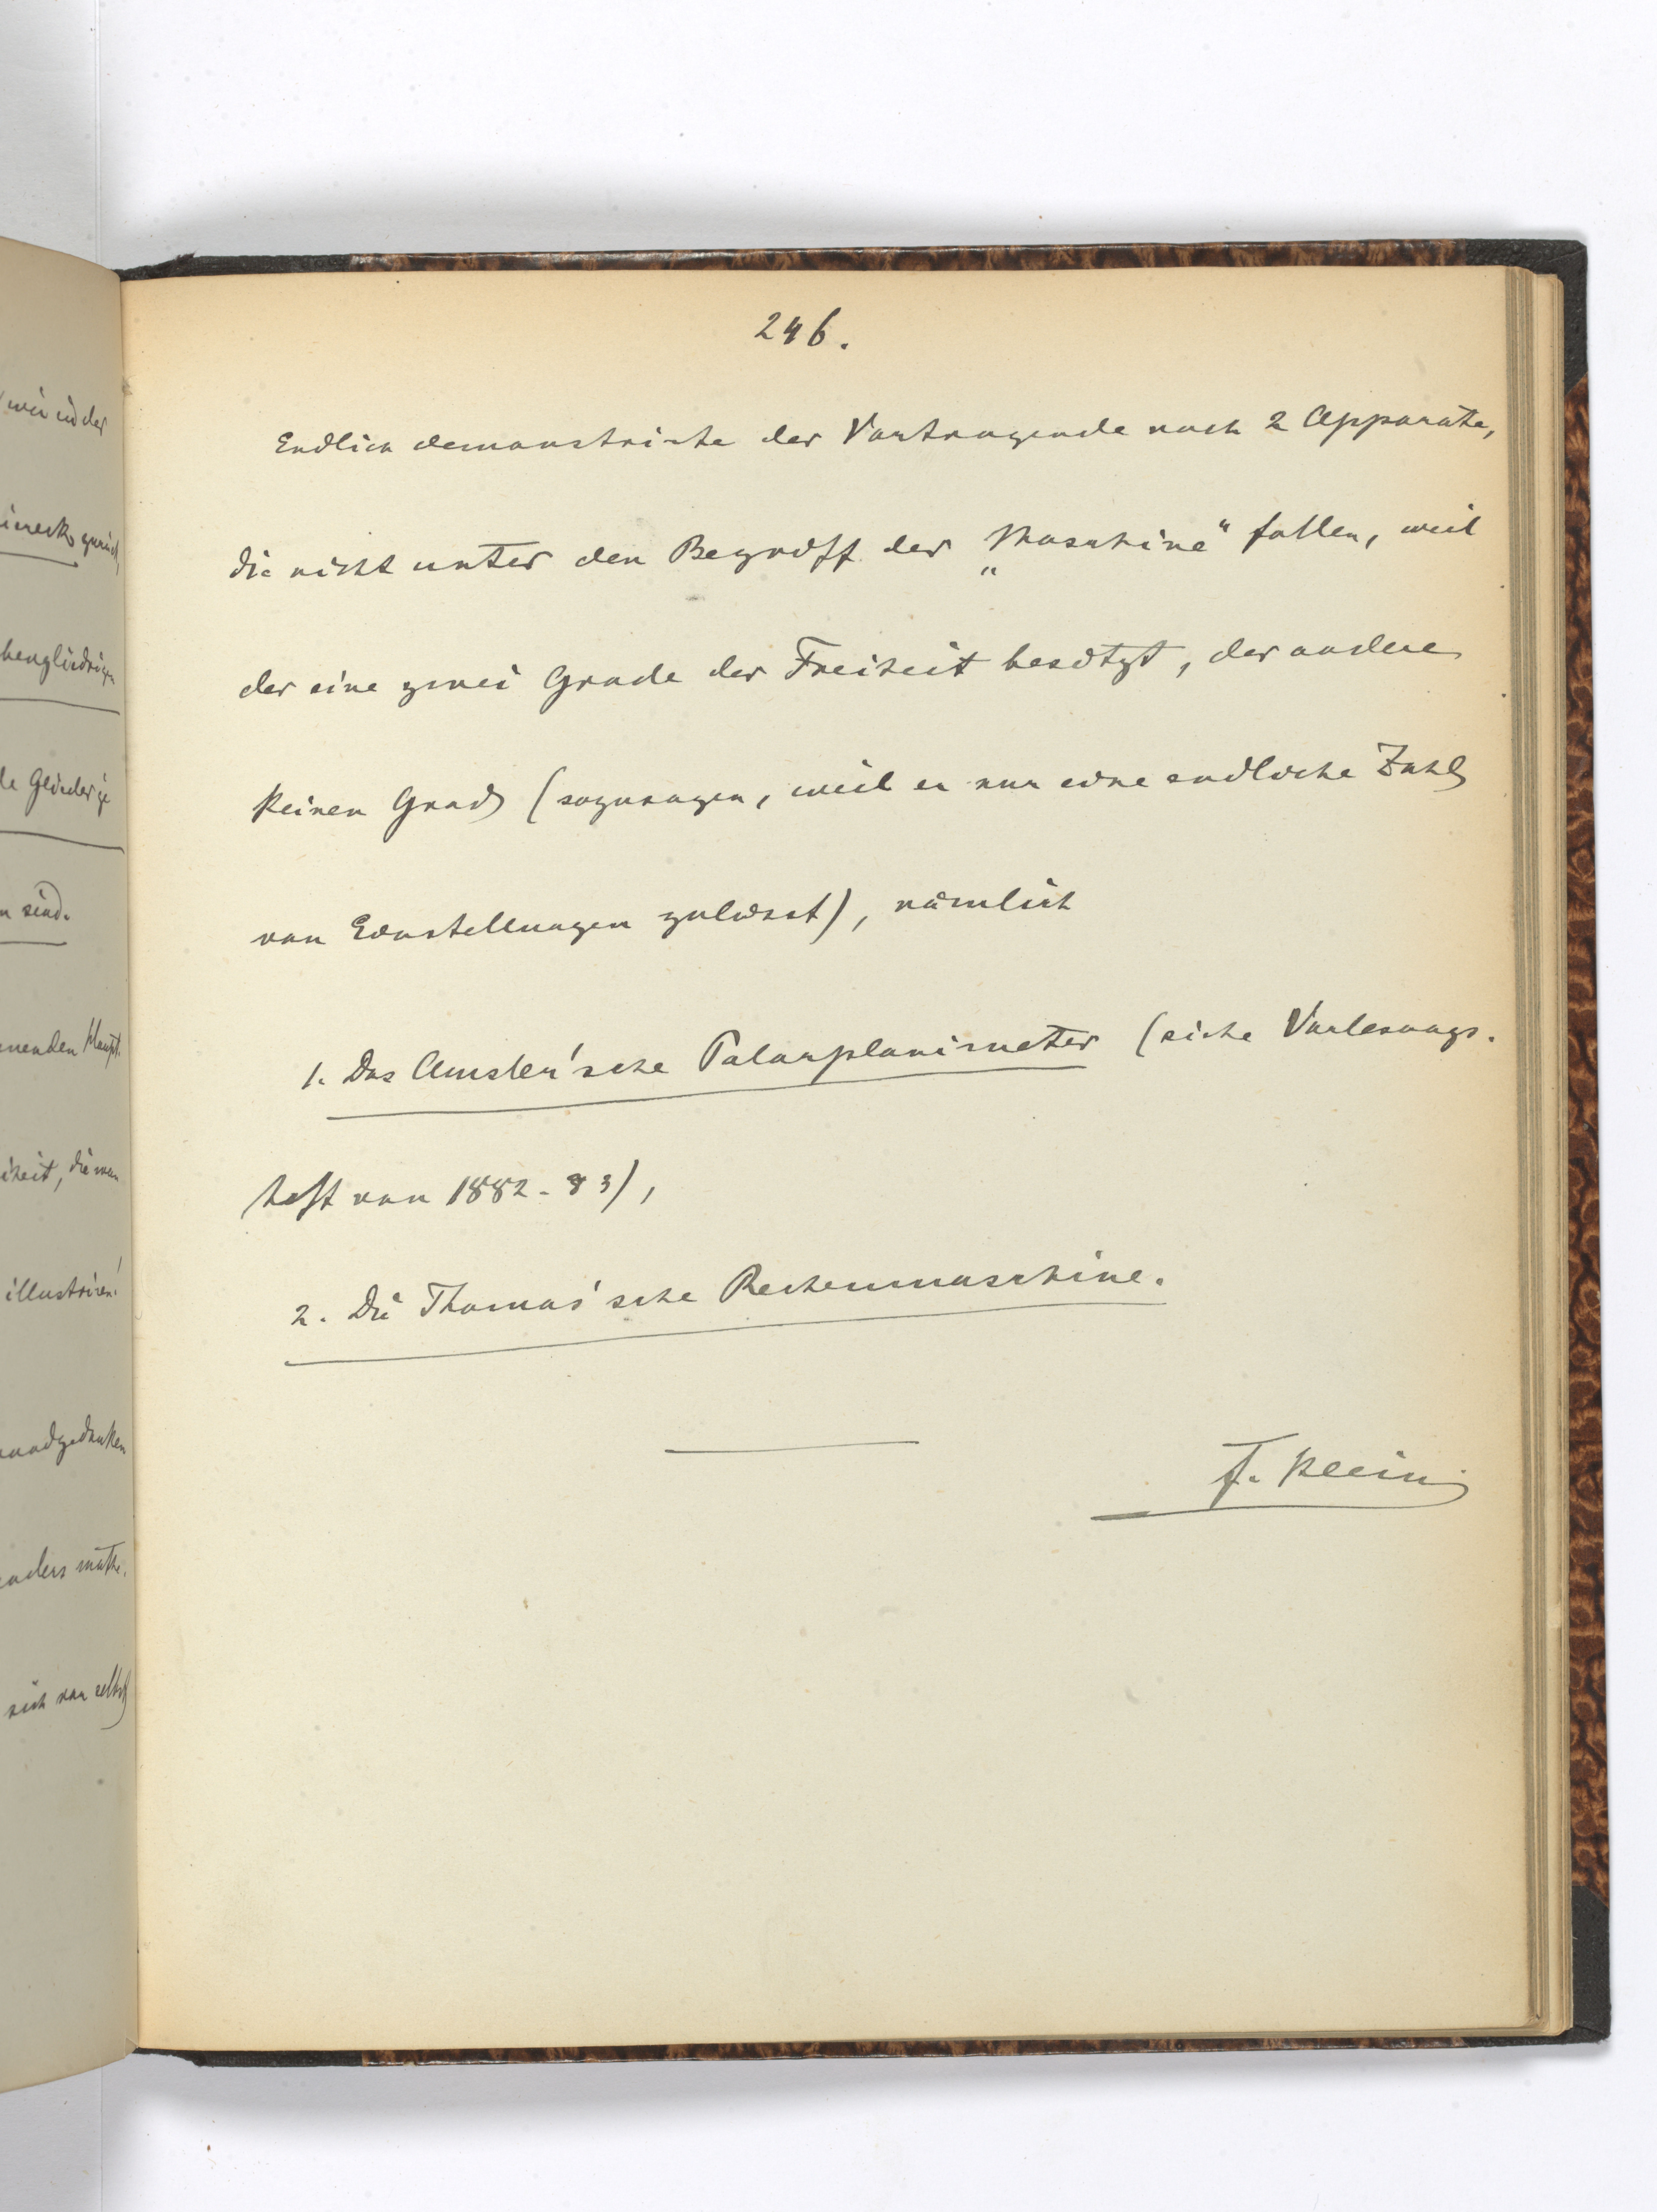 246.
Endlich demonstrirte der Vortragende noch 2 Apparate,
die nicht unter den Begriff der „Maschine“ fallen, weil
der eine zwei Grade der Freiheit besitzt, der andere
keinen Grad (sozusagen, weil er nur eine endliche Zahl
von Einstellungen zulässt), nämlich
1. Das Amsler'sche Polarplanimeter (siehe Vorlesungs-
heft von 1882-83),
2. Die Thomas'sche Rechenmaschine.
F. Klein
wir in der
zurück,
Glieder
n sind.
menden Haupt-
iheit, die man
illustriren!
undgedanken
sich von selbst